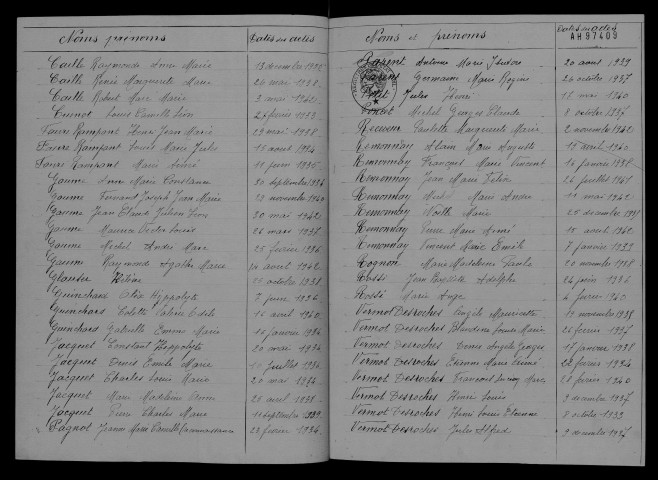 Noms prenoms Dates des actes
Caille Raymonde Anna Marie 13 decembre
Caille Renée Marguerite Marie 26 mai 1938
Caille Robert Marc Marie 3 mai 1942
Cuenot Louis Camille Léon 24 fevrier 1933
Faivre Rampant Henri Jean Marie 29 mai 1938
Faivre Rampant Louis Marie Jules 15 aout 1934
Faivre Rampant Marie 11 juin 1935
Gaume Anna Marie Constance 30 septembre 1934
Gaume Fernand Joseph Jean Marie 29 novembre 1940
Gaume Jean Claude Julien Léon 20 mai 1942
Gaume Maurice Victor Louis 26 mars 1937
Gaume Michel André Marc 25 fevrier 1936
Gaume Raymonde Agathe Marie avril 1942
Glauser octobre 1938
Guinchard Alix Hyppolyte 7 juin 1936
Guinchard Colette Valerie 16 avril 1940
Guinchard Gabrielle Emma Marie 15 janvier 1934
Jacquet Constant Hyppolyte 20 avril 1934
Jacquet Denis Emile Marie 11 juillet 1936
Jacquet Charles Louis Marie 20 mai 1934
Jacquet Marie Madeleine Anna 28 avril 1938
Jacquet Pierre Charles Marie 11 septembre 1939
Pagnot Jeanne Marie Camille 23 fevrier 1934
Noms et prénoms Dates des actes
AH97409
Parent Antoine Marie Isidore 20 aout 1939
Parent Germaine Marie Rosine 26 octobre 1937
Petit Jules Henri 12 mai 1940
Michel Georges Claude 8 octobre 1937
Receveur Paulette Marguerite Marie 2 novembre 1942
Remonnay Alain Marie Auguste 15 avril 1940
Remonnay François Marie Vincent 16 janvier 1938
Remonnay Jean Marie Félix 26 juillet 1941
Remonnay Marie André 11 mai 1942
Remonnay Noelle Marie 25 decembre 1931
Remonnay Pierre Marie Aimé 11 aout 1942
Remonnay Vincent Marie Emile 7 janvier 1933
Rognon Marie Madeleine Paule 20 novembre 1938
Rossi Jean Baptiste Adolphe 24 juin 1936
Rossi Marie Ange 4 fevrier 1940
Vermot Desroches Angele Mauricette 11 novembre 1938
Vermot Desroches Blandine Louise Marie 26 fevrier 1937
Vermot Desroches Denis Angele Georges 17 janvier 1938
Vermot Desroches Etienne Marie Aimé 22 fevrier 1934
Vermot Desroches François Marc 21 fevrier 1940
Vermot Desroches Henri Louis 9 decembre 1937
Vermot Desroches Henri Louis Etienne 8 octobre 1933
Vermot Desroches Jules Alfred 9 decembre 1937